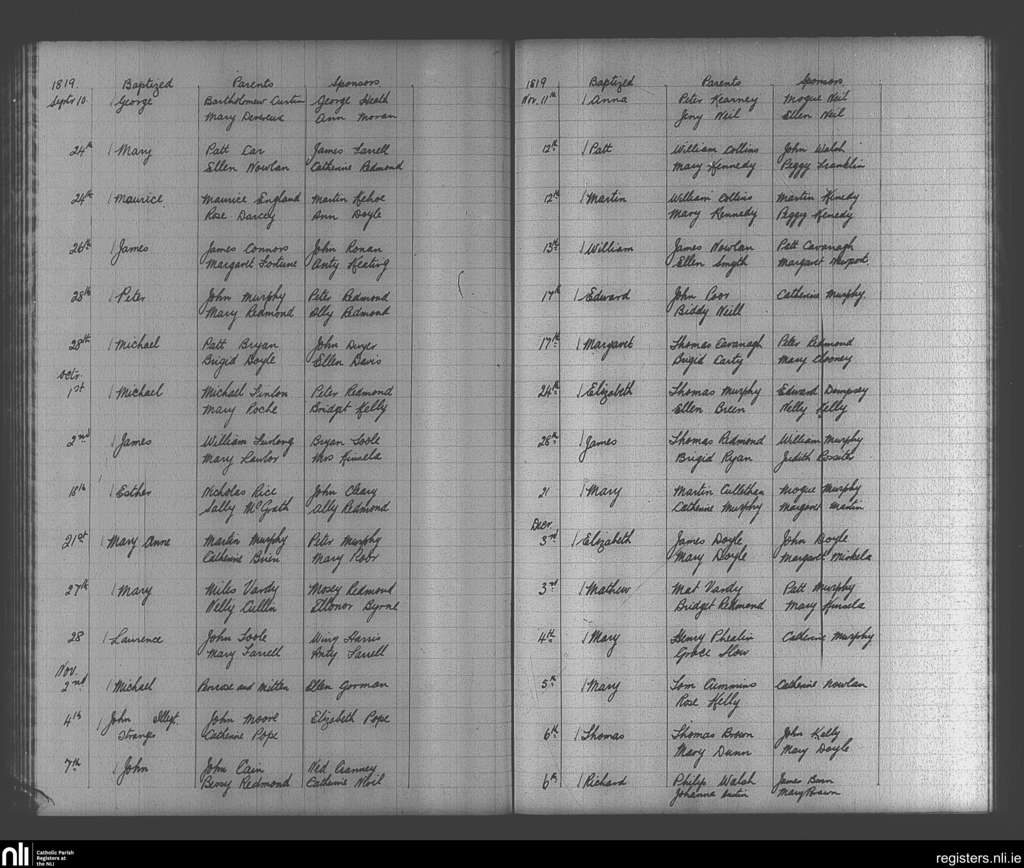 1819. Baptized Parents Sponsors
Septr 10 1 George Bartholomew Curtin George Heath
Mary Devereux Ann Moran
24th 1 Mary Patt Car James Farrell
Ellen Nowlan Catherine Redmond
24th 1 Maurice Maurice England Martin Kehoe
Rose Darcey Ann Doyle
26th 1 James James Connors John Ronan
Margaret Fortune Anty Keating
28th 1 Peter John Murphy Peter Redmond
Mary Redmond Ally Redmond
28th 1 Michael Patt Bryan John Dwyer
Brigid Doyle Ellen Davis
Octr.
1st 1 Michael Michael Finlon Peter Redmond
Mary Roche Bridget Kelly
2nd 1 James William Furlong Bryan Toole
Mary Lawlor Mrs Kinsela
18th 1 Esther Nicholas Rice John Cleary
Sally McGrath Ally Redmond
21st 1 Mary Anne Martin Murphy Peter Murphy
Catherine Brien Mary Poor
27th 1 Mary Miles Vardy Mosey Redmond
Nelly Cullen Elleonor Byrne
28 1 Laurence John Toole Winy Harris
Mary Farrell Anty Farrell
Nov.
2nd 1 Michael Penrose and Mitten Ellen Gorman
4th 1 John Illegt. John Moore Elizabeth Pope
Strange Catherine Pope
7th 1 John John Cain Ned Cranney
Bessy Redmond Catherine Neil
1819 Baptized Parents Sponsors
Nov. 11th 1 Anna Peter Kearney Mogue Neil
Jeny Neil Ellen Neil
12th 1 Patt William Collins John Walsh
Mary Kennedy Peggy Franklin
12th 1 Martin William Collins Martin Kenedy
Mary Kennedy Peggy Kenedy
13th 1 William James Nowlan Patt Cavanagh
Ellen Smyth Margaret Newport
17th 1 Edward John Poor Catherine Murphy
Biddy Neill
17th 1 Margaret Thomas Cavanagh Peter Redmond
Brigid Carty Mary Clooney
24th 1 Elizabeth Thomas Murphy Edward Dempsey
Ellen Breen Nelly Kelly
28th 1 James Thomas Redmond William Murphy
Brigid Ryan Judith Rossiter
21 1 Mary Martin Cullethan Mogue Murphy
Catherine Murphy Margaret Martin
Decr
3rd 1 Elizabeth James Doyle John Doyle
Mary Doyle Margaret
3rd 1 Mathew Mat Vardy Patt Murphy
Bridget Redmond Mary Kinsela
4th 1 Mary Henry Phealin Catherine Murphy
Grace How
5th 1 Mary Tom Cummins Catherine Nowlan
Rose Kelly
6th 1 Thomas Thomas Brown John Kelly
Mary Dunn Mary Doyle
6th 1 Richard Philip Walsh James Bern
Johanna Mary Brown
nli Catholic Parish
Registers at
the NLI
registers.nli.ie